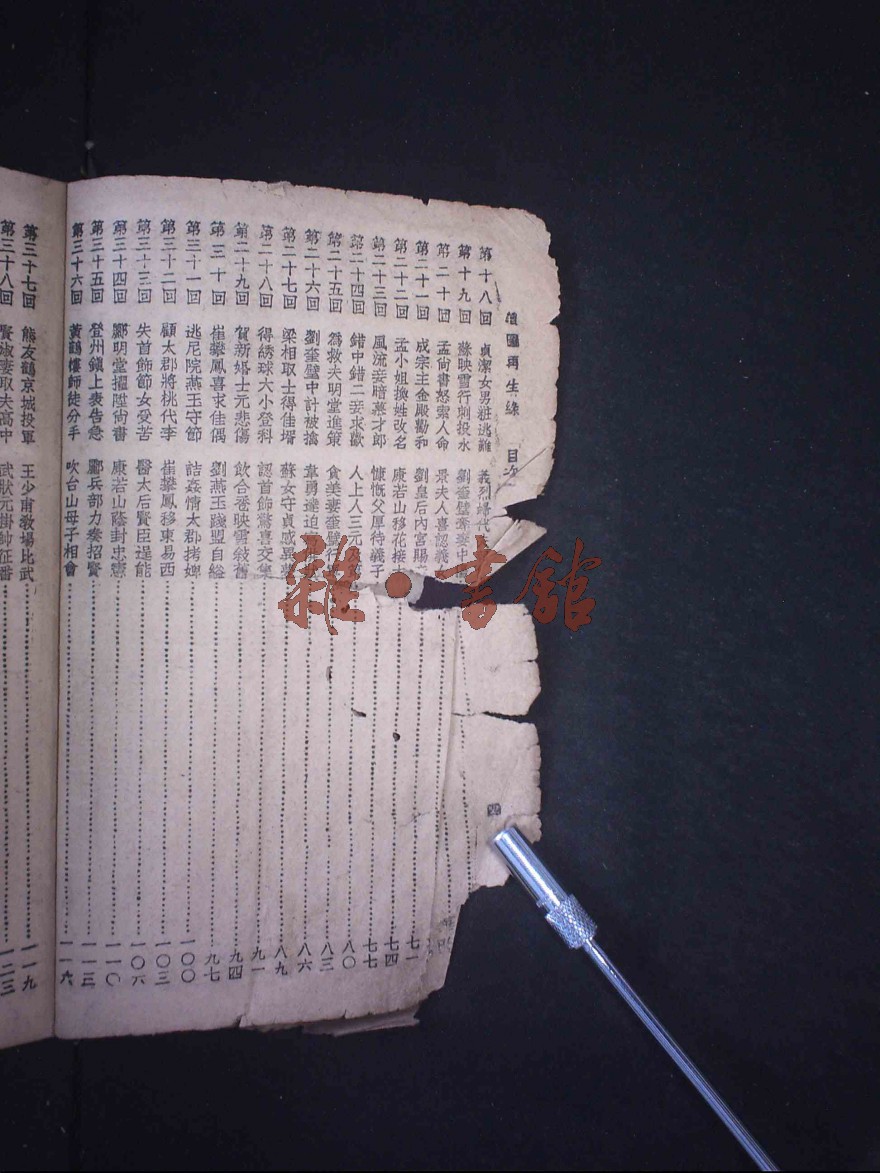 繪圖再生緣 目次 四
第十八回 貞潔女男粧逃難 義烈婦代
第十九回 蘇映雪行刺投水 劉奎璧牽妻中
第二十回 孟尚書怒索人命 景夫人喜認義
第二十一回 成宗主金殿勸和 劉皇后內宮賜
第二十二回 孟小姐換姓改名 康若山移花接 七一
第二十三回 風流妾暗慕才郎 慷慨父厚待義子 七四
第二十四回 錯中錯二妾求歡 人上人三元及 七七
第二十五回 爲救夫明堂進策 貪美妻奎璧行 八〇
第二十六回 劉奎璧中計被擒 韋勇達迫 八三
第二十七回 梁相取士得佳壻 蘇女守貞感異夢 八六
第二十八回 得綉球大小登科 認首飾驚喜交集 八九
第二十九回 賀新婚士元悲傷 飲合卺映雪敍舊 九一
第三十回 崔攀鳳喜求佳偶 劉燕玉踐盟自縊 九四
第三十一回 逃尼院燕玉守節 詰姦情太郡拷婢 九七
第三十二回 顧太郡將桃代李 崔攀鳳移東易西 一〇〇
第三十三回 失首飾節女受苦 醫太后賢臣逞能 一〇三
第三十四回 酈明堂擢陞尙書 康若山蔭封忠憲 一〇六
第三十五回 登州鎭上表告急 酈兵部力奏招賢 一一〇
第三十六回 黃鶴樓師徒分手 吹台山母子相會 一一三
一一六
第三十七回 熊友鶴京城投軍 王少甫敎場比武 一一九
第三十八回 賢淑妻取夫高中 武狀元掛帥征番 一二三
雜·書館